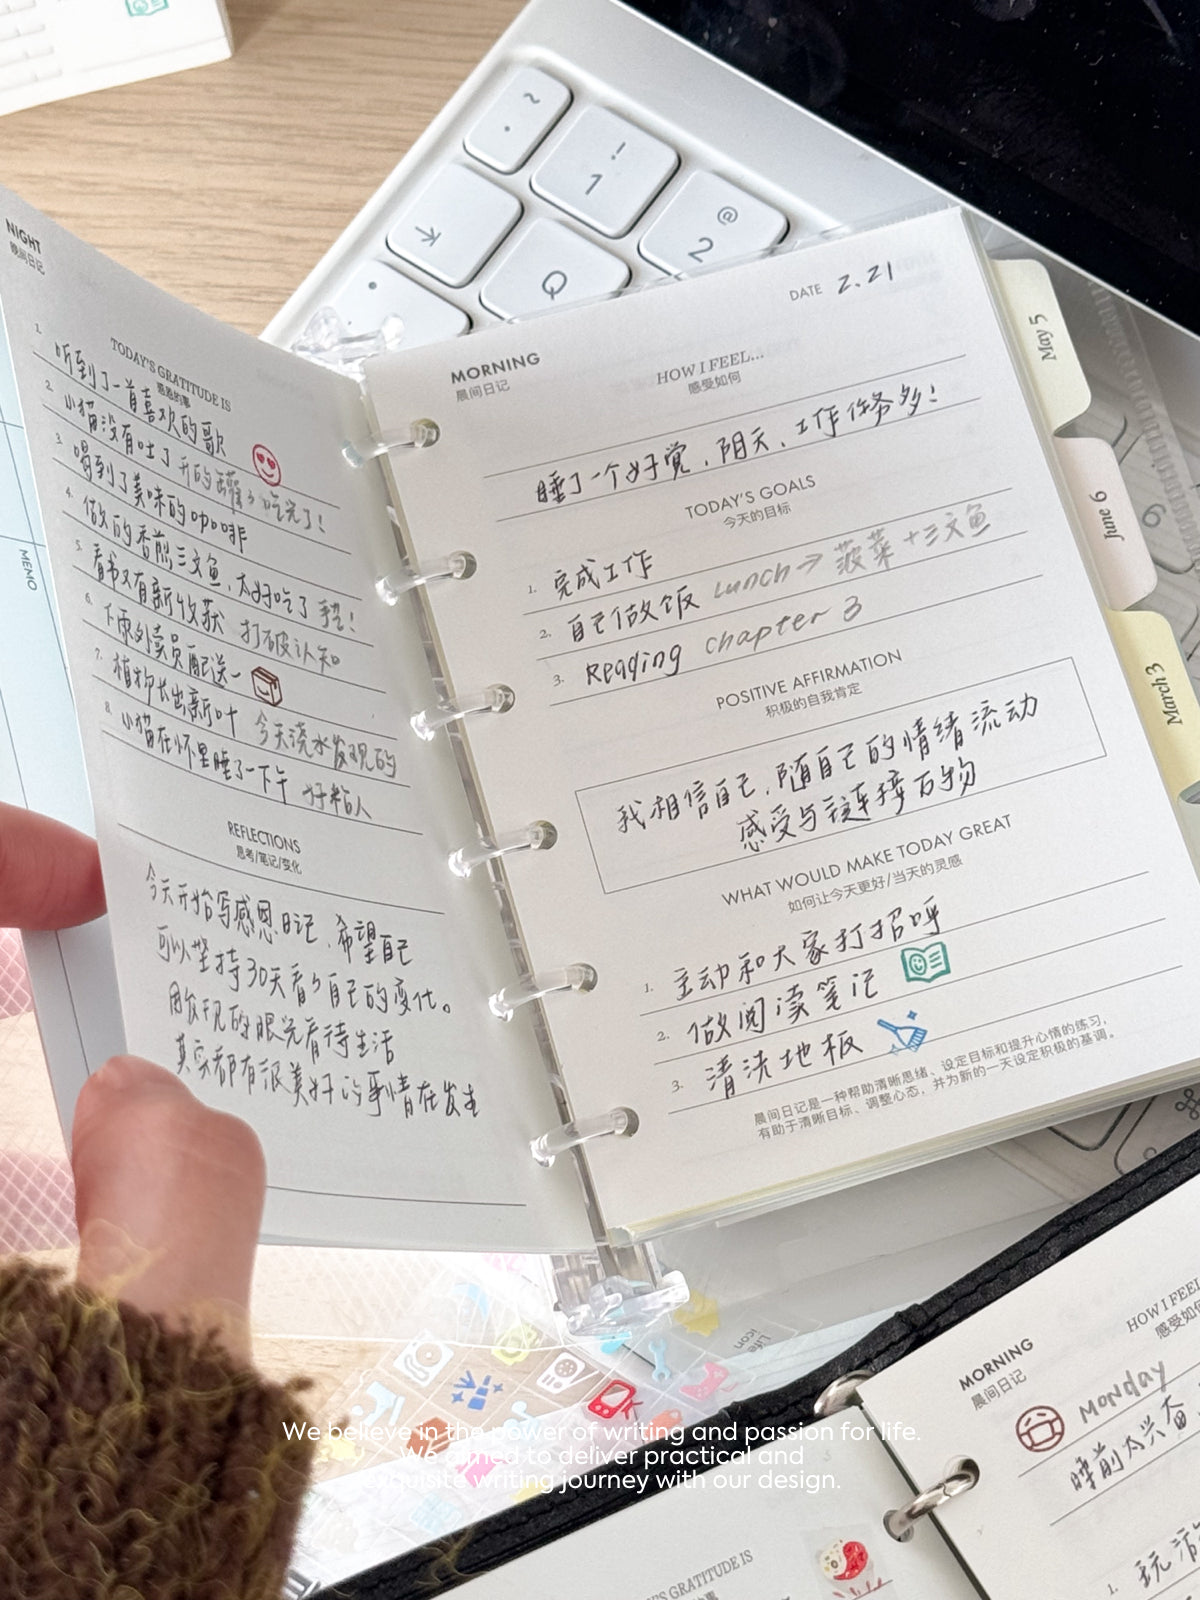 NIGHT
晚间日记
TODAY'S GRATITUDE IS
感恩的事
1. 听到了一首喜欢的歌
2. 小猫没有吐了 开的罐罐 吃完了!
3. 喝到了美味的咖啡
4. 做的香煎三文鱼,太好吃了 棒!
5. 看书又有新收获 打破认知
6. 下雨外卖员配送~
7. 植物长出新叶 今天浇水发现的
8. 小猫在怀里睡了一下午 好粘人
REFLECTIONS
思考/笔记/变化
今天开始写感恩日记,希望自己
可以坚持30天看看自己的变化。
用发现的眼光看待生活
真实都有很美好的事情在发生
MEMO
DATE 2.21
MORNING
晨间日记
HOW I FEEL...
感受如何
睡了一个好觉,阴天,工作任务多!
TODAY'S GOALS
今天的目标
1. 完成工作
2. 自己做饭 Lunch → 菠菜+三文鱼
3. Reading chapter 3
POSITIVE AFFIRMATION
积极的自我肯定
我相信自己,随自己的情绪流动
感受与链连接万物
WHAT WOULD MAKE TODAY GREAT
如何让今天更好/当天的灵感
1. 主动和大家打招呼
2. 做阅读笔记
3. 清洗地板
晨间日记是一种帮助清晰思绪、设定目标和提升心情的练习,
有助于清晰目标、调整心态,并为新的一天设定积极的基调。
May 5
June 6
March 3
~
!
1
@
2
Q
Life
Icon
MORNING
晨间日记
HOW I FEEL
感受如何
Monday
睡前太兴奋
1. 玩游
'S GRATITUDE IS
We believe in the power of writing and passion for life.
We aimed to deliver practical and
exquisite writing journey with our design.